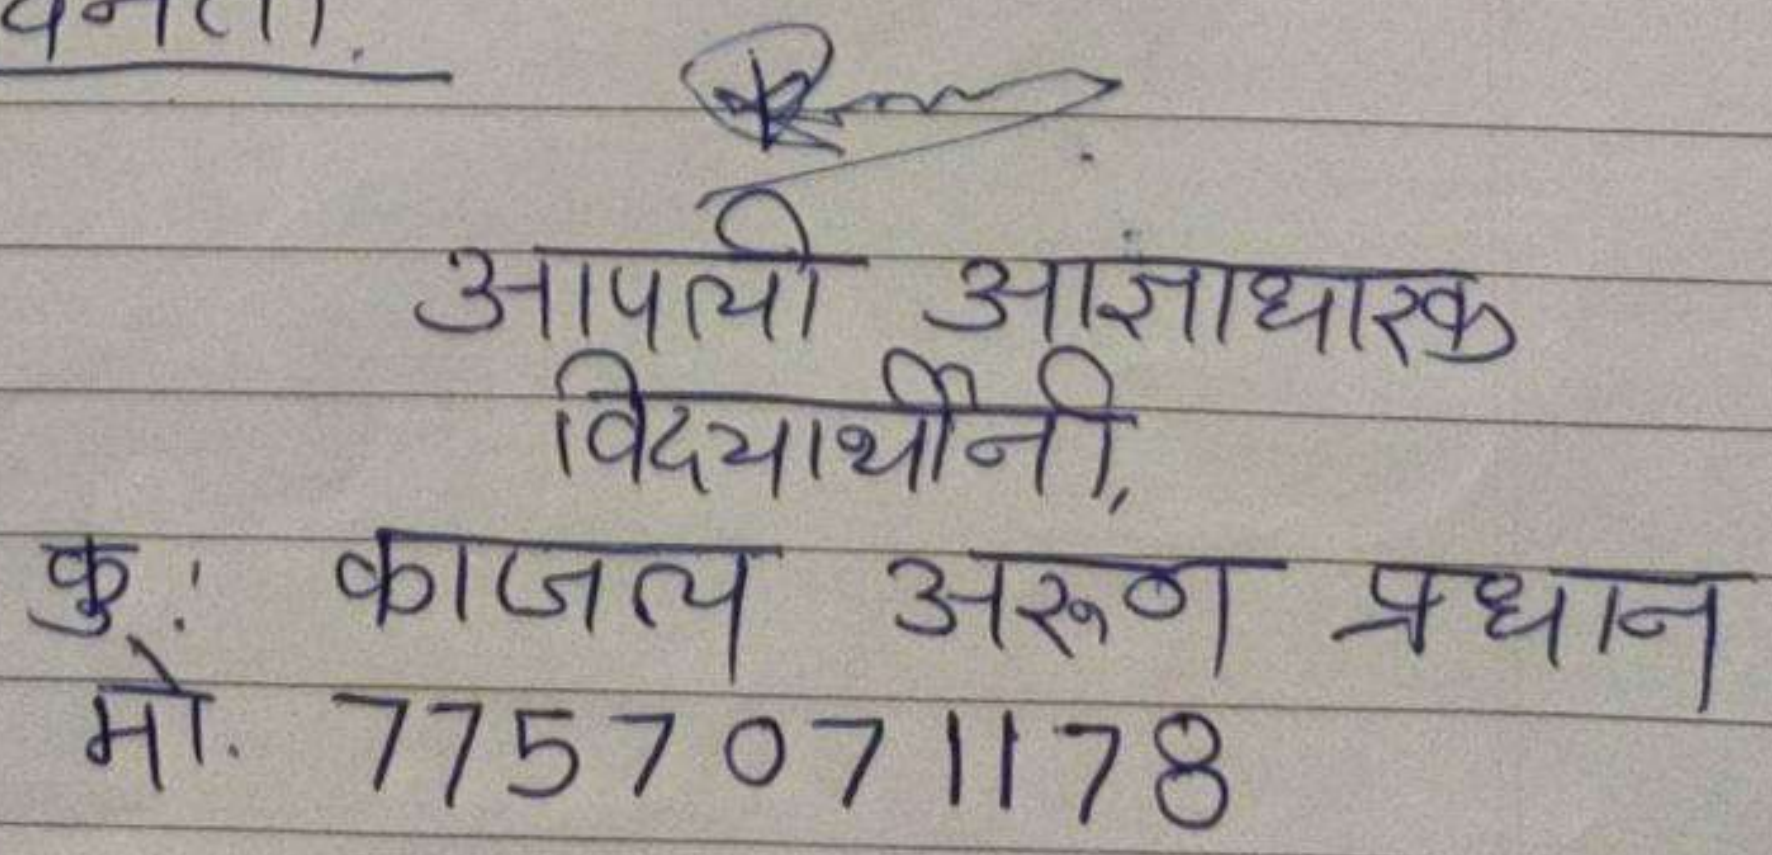 आपली आज्ञाधारक
विदयार्थीनी,
कु: काजल अरूण प्रधान
मो. 7757071178